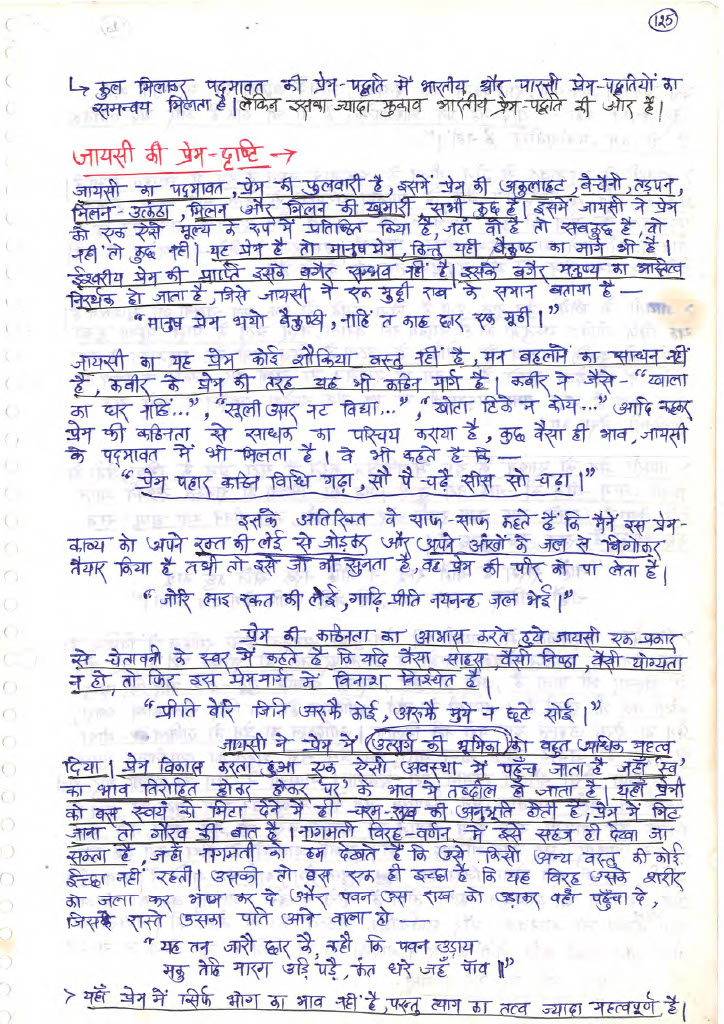 125
↳ कुल मिलाकर पद्मावत की प्रेम-पद्धति में भारतीय और पारसी प्रेम-पद्धतियों का
समन्वय मिलता है। लेकिन इसका ज्यादा झुकाव भारतीय प्रेम-पद्धति की ओर है।
जायसी की प्रेम-दृष्टि →
जायसी का पद्मावत, प्रेम की फुलवारी है, इसमें प्रेम की अकुलाहट, बेचैनी, तड़पन,
मिलन-उत्कंठा, मिलन और मिलन की खुमारी, सभी कुछ है। इसमें जायसी ने प्रेम
को एक ऐसे मूल्य के रूप में प्रतिष्ठित किया है, जहाँ वो है तो सबकुछ है, वो
नहीं तो कुछ नहीं। यह प्रेम है तो मानुष प्रेम, किन्तु यही बैकुण्ठ का मार्ग भी है।
ईश्वरीय प्रेम की प्राप्ति इसके बगैर सम्भव नहीं है। इसके बगैर मनुष्य का अस्तित्व
निरर्थक हो जाता है, जिसे जायसी ने एक मुट्ठी राख के समान बताया है —
"मानुष प्रेम भयो बैकुण्ठी, नाहिं त काह छार एक मूठी।"
जायसी का यह प्रेम कोई शौकिया वस्तु नहीं है, मन बहलाने का साधन नहीं
है, कबीर के प्रेम की तरह यह भी कठिन मार्ग है। कबीर ने जैसे- "खाला
का घर नाहिं...", "सूली ऊपर नट विद्या...", "खोता टिके न कोय..." आदि कहकर
प्रेम की कठिनता से साधक का परिचय कराया है, कुछ वैसा ही भाव, जायसी
के पद्मावत में भी मिलता है। वे भी कहते हैं कि —
"प्रेम पहार कठिन विधि गढ़ा, सौ पै चढ़ै सीस सो चढ़ा।"
इसके अतिरिक्त वे साफ-साफ कहते हैं कि मैंने इस प्रेम-
काव्य को अपने रक्त की लेई से जोड़कर और अपने आंखों के जल से भिगोकर
तैयार किया है तभी तो इसे जो भी सुनता है, वह प्रेम की पीर को पा लेता है।
"जोरि लाइ रकत की लेई, गाढ़ि प्रीति नयनन्ह जल भेई।"
प्रेम की कठिनता का आभास करते हुये जायसी एक प्रकार
से चेतावनी के स्वर में कहते हैं कि यदि वैसा साहस, वैसी निष्ठा, वैसी योग्यता
न हो, तो फिर इस प्रेममार्ग में विनाश निश्चित है।
"प्रीति बेरि जिनि अरुझै कोई, अरुझै मुये न छूटै सोई।"
जायसी ने प्रेम में उत्सर्ग की भूमिका को बहुत अधिक महत्व
दिया। प्रेम विकास करता हुआ एक ऐसी अवस्था में पहुँच जाता है जहाँ 'स्व'
का भाव तिरोहित होकर होकर 'पर' के भाव में तब्दील हो जाता है। यहाँ प्रेमी
को बस स्वयं को मिटा देने में ही चरम-सुख की अनुभूति होती है, प्रेम में मिट
जाना तो गौरव की बात है। नागमती विरह-वर्णन में इसे सहज ही देखा जा
सकता है, जहाँ नागमती को हम देखते हैं कि उसे किसी अन्य वस्तु की कोई
ईच्छा नहीं रहती। उसकी तो बस एक ही इच्छा है कि यह विरह उसके शरीर
को जला कर भष्म कर दे और पवन उस राख को उड़ाकर वहाँ पहुँचा दे,
जिसके रास्ते उसका पति आने वाला हो —
"यह तन जारौ छार कै, कहौ कि पवन उड़ाय
मकु तेहि मारग उड़ि पड़ै, कंत धरे जहँ पाँव॥"
> यहाँ प्रेम में सिर्फ भोग का भाव नहीं है, परन्तु त्याग का तत्व ज्यादा महत्वपूर्ण है।